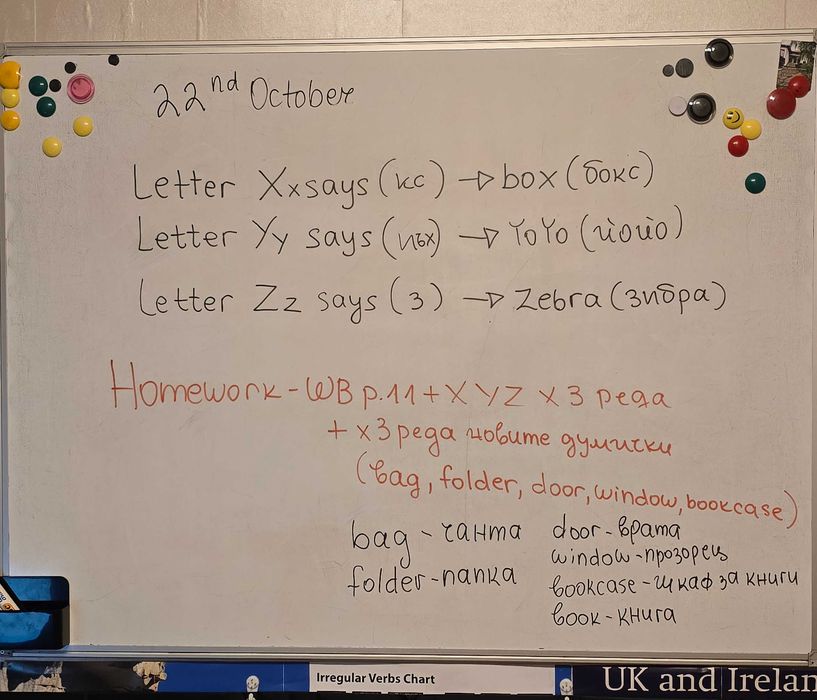 22nd October
Letter Xx says (кс) → box (бокс)
Letter Yy says (йъх) → YoYo (йойо)
Letter Zz says (з) → Zebra (зибра)
Homework - WB p.11 + X Y Z x 3 реда
+ x3 реда новите думички
(bag, folder, door, window, bookcase)
bag - чанта
folder - папка
door - врата
window - прозорец
bookcase - шкаф за книги
book - книга
Irregular Verbs Chart
UK and Irelan